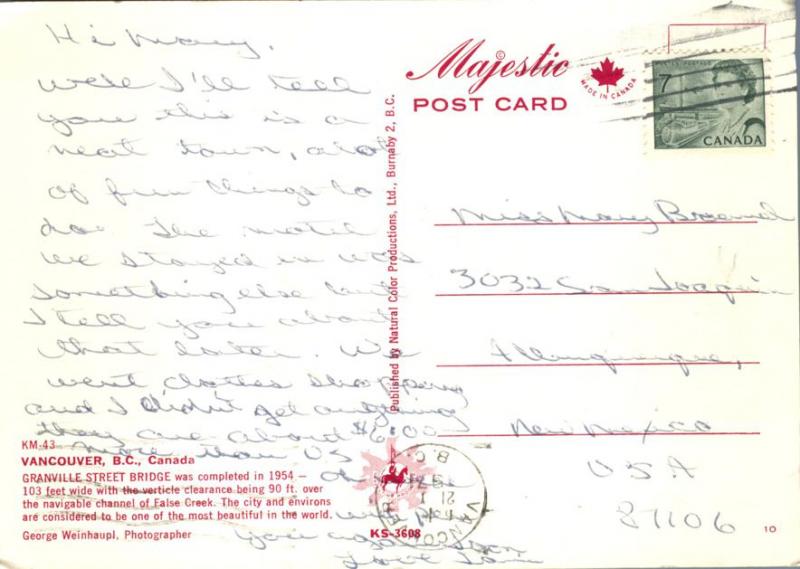 Hi Mary,
well I'll tell
you this is a
neat town, a lot
of fun things to
do. The motel
we stayed in was
something else but
I tell you about
that later. We
went clothes shopping
and I didn't get anything
they are about $6.00
more than US
you again soon
Love
Majestic
POST CARD
MADE IN CANADA
7
CANADA
Miss Mary
3032 San Joaquin
Albuquerque,
New Mexico
USA
87106
Published by Natural Color Productions, Ltd., Burnaby 2, B.C.
KM-43
VANCOUVER, B.C., Canada
GRANVILLE STREET BRIDGE was completed in 1954 —
103 feet wide with the verticle clearance being 90 ft. over
the navigable channel of False Creek. The city and environs
are considered to be one of the most beautiful in the world.
George Weinhaupl, Photographer
KS-3608
VANCOUVER
B.C.
21
10